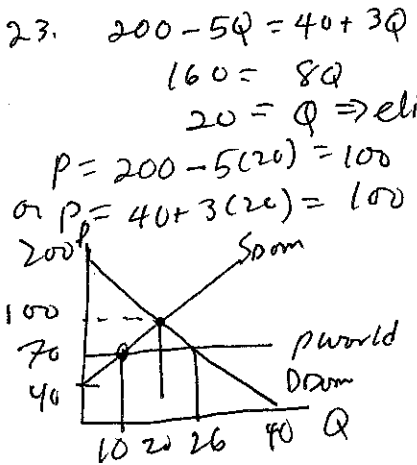 23. 200 - 5Q = 40 + 3Q
160 = 8Q
20 = Q ⇒ eli
P = 200 - 5(20) = 100
or P = 40 + 3(20) = 100
200 P
SDom
100
70
P world
40
DDom
10 20 26 40 Q